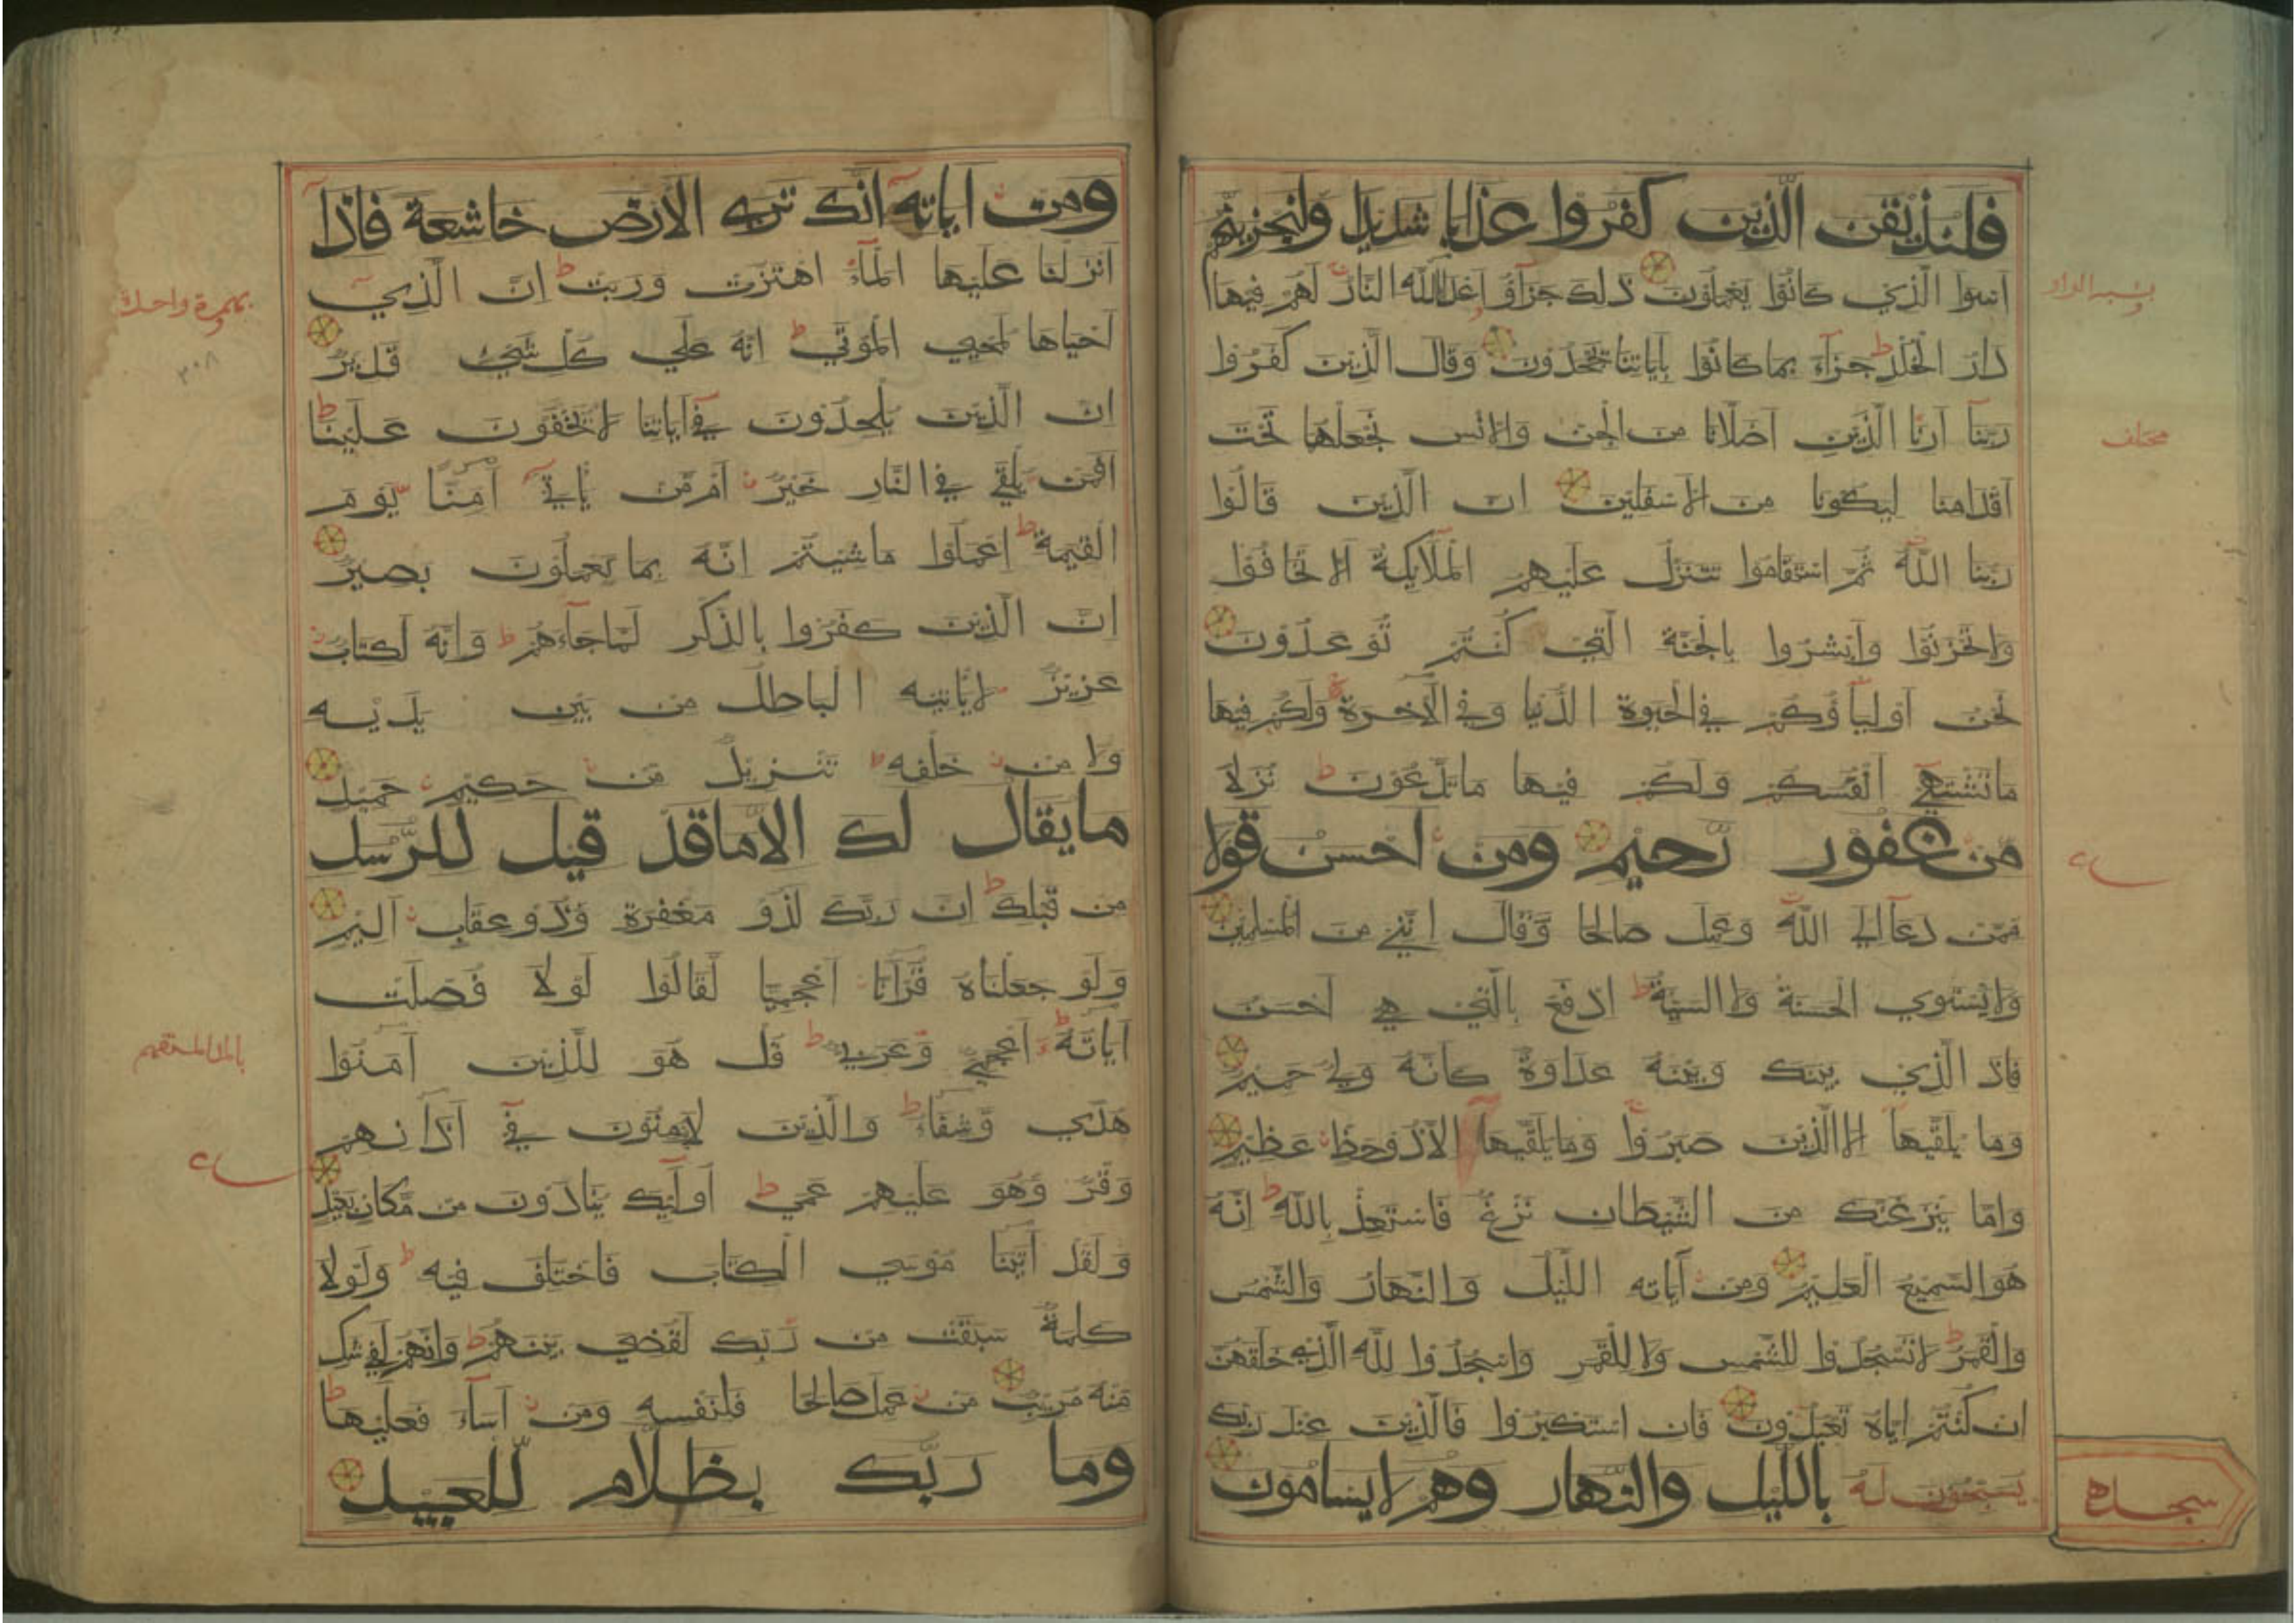 فلنذيقن الذين كفروا عذابا شديدا ولنجزينهم
اسوا الذي كانوا يعملون ذلك جزآؤ اعدآالله النار لهم فيها
دار الخلد جزآء بما كانوا بآياتنا يجحدون وقال الذين كفروا
ربنآ ارنا الذين اضلانا من الجن والانس نجعلهما تحت
اقدامنا ليكونا من الاسفلين ان الذين قالوا
ربنا الله ثم استقاموا تتنزل عليهم الملائكة الا تخافوا
ولا تحزنوا وابشروا بالجنة التي كنتم توعدون
نحن اوليآؤكم في الحيوة الدنيا وفي الآخرة ولكم فيها
ما تشتهي انفسكم ولكم فيها ما تدعون نزلا
من غفور رحيم ومن احسن قولا
ممن دعآ الي الله وعمل صالحا وقال انني من المسلمين
ولا يستوي الحسنة ولا السيئة ادفع بالتي هي احسن
فاذ الذي بينك وبينه عداوة كانه ولي حميم
وما يلقيها الا الذين صبروا وما يلقيها الا ذو حظ عظيم
واما ينزغنك من الشيطان نزغ فاستعذ بالله انه
هو السميع العليم ومن آياته الليل والنهار والشمس
والقمر لا تسجدوا للشمس ولا للقمر واسجدوا لله الذي خلقهن
ان كنتم اياه تعبدون فان استكبروا فالذين عند ربك
يسبحون له بالليل والنهار وهم لا يسامون
سجده
ومن اياته انك تري الارض خاشعة فاذآ
انزلنا عليها المآء اهتزت وربت ان الذي
احياها لمحيي الموتي انه علي كل شيء قدير
ان الذين يلحدون في آياتنا لا يخفون علينا
افمن يلقي في النار خير ام من ياتي آمنا يوم
القيمة اعملوا ما شيتم انه بما تعملون بصير
ان الذين كفروا بالذكر لما جآءهم وانه لكتاب
عزيز لا ياتيه الباطل من بين يديه
ولا من خلفه تنزيل من حكيم حميد
ما يقال لك الا ما قد قيل للرسل
من قبلك ان ربك لذو مغفرة وذو عقاب اليم
ولو جعلناه قرآنا اعجميا لقالوا لولا فصلت
آياته اعجمي وعربي قل هو للذين آمنوا
هدي وشفآء والذين لا يؤمنون في آذانهم
وقر وهو عليهم عمي اوليك ينادون من مكان بعيد
ولقد آتينا موسي الكتاب فاختلف فيه ولولا
كلمة سبقت من ربك لقضي بينهم وانهم لفي شك
منه مريب من عمل صالحا فلنفسه ومن اسآء فعليها
وما ربك بظلام للعبيد
بهمزة واحدة
٣٠٨